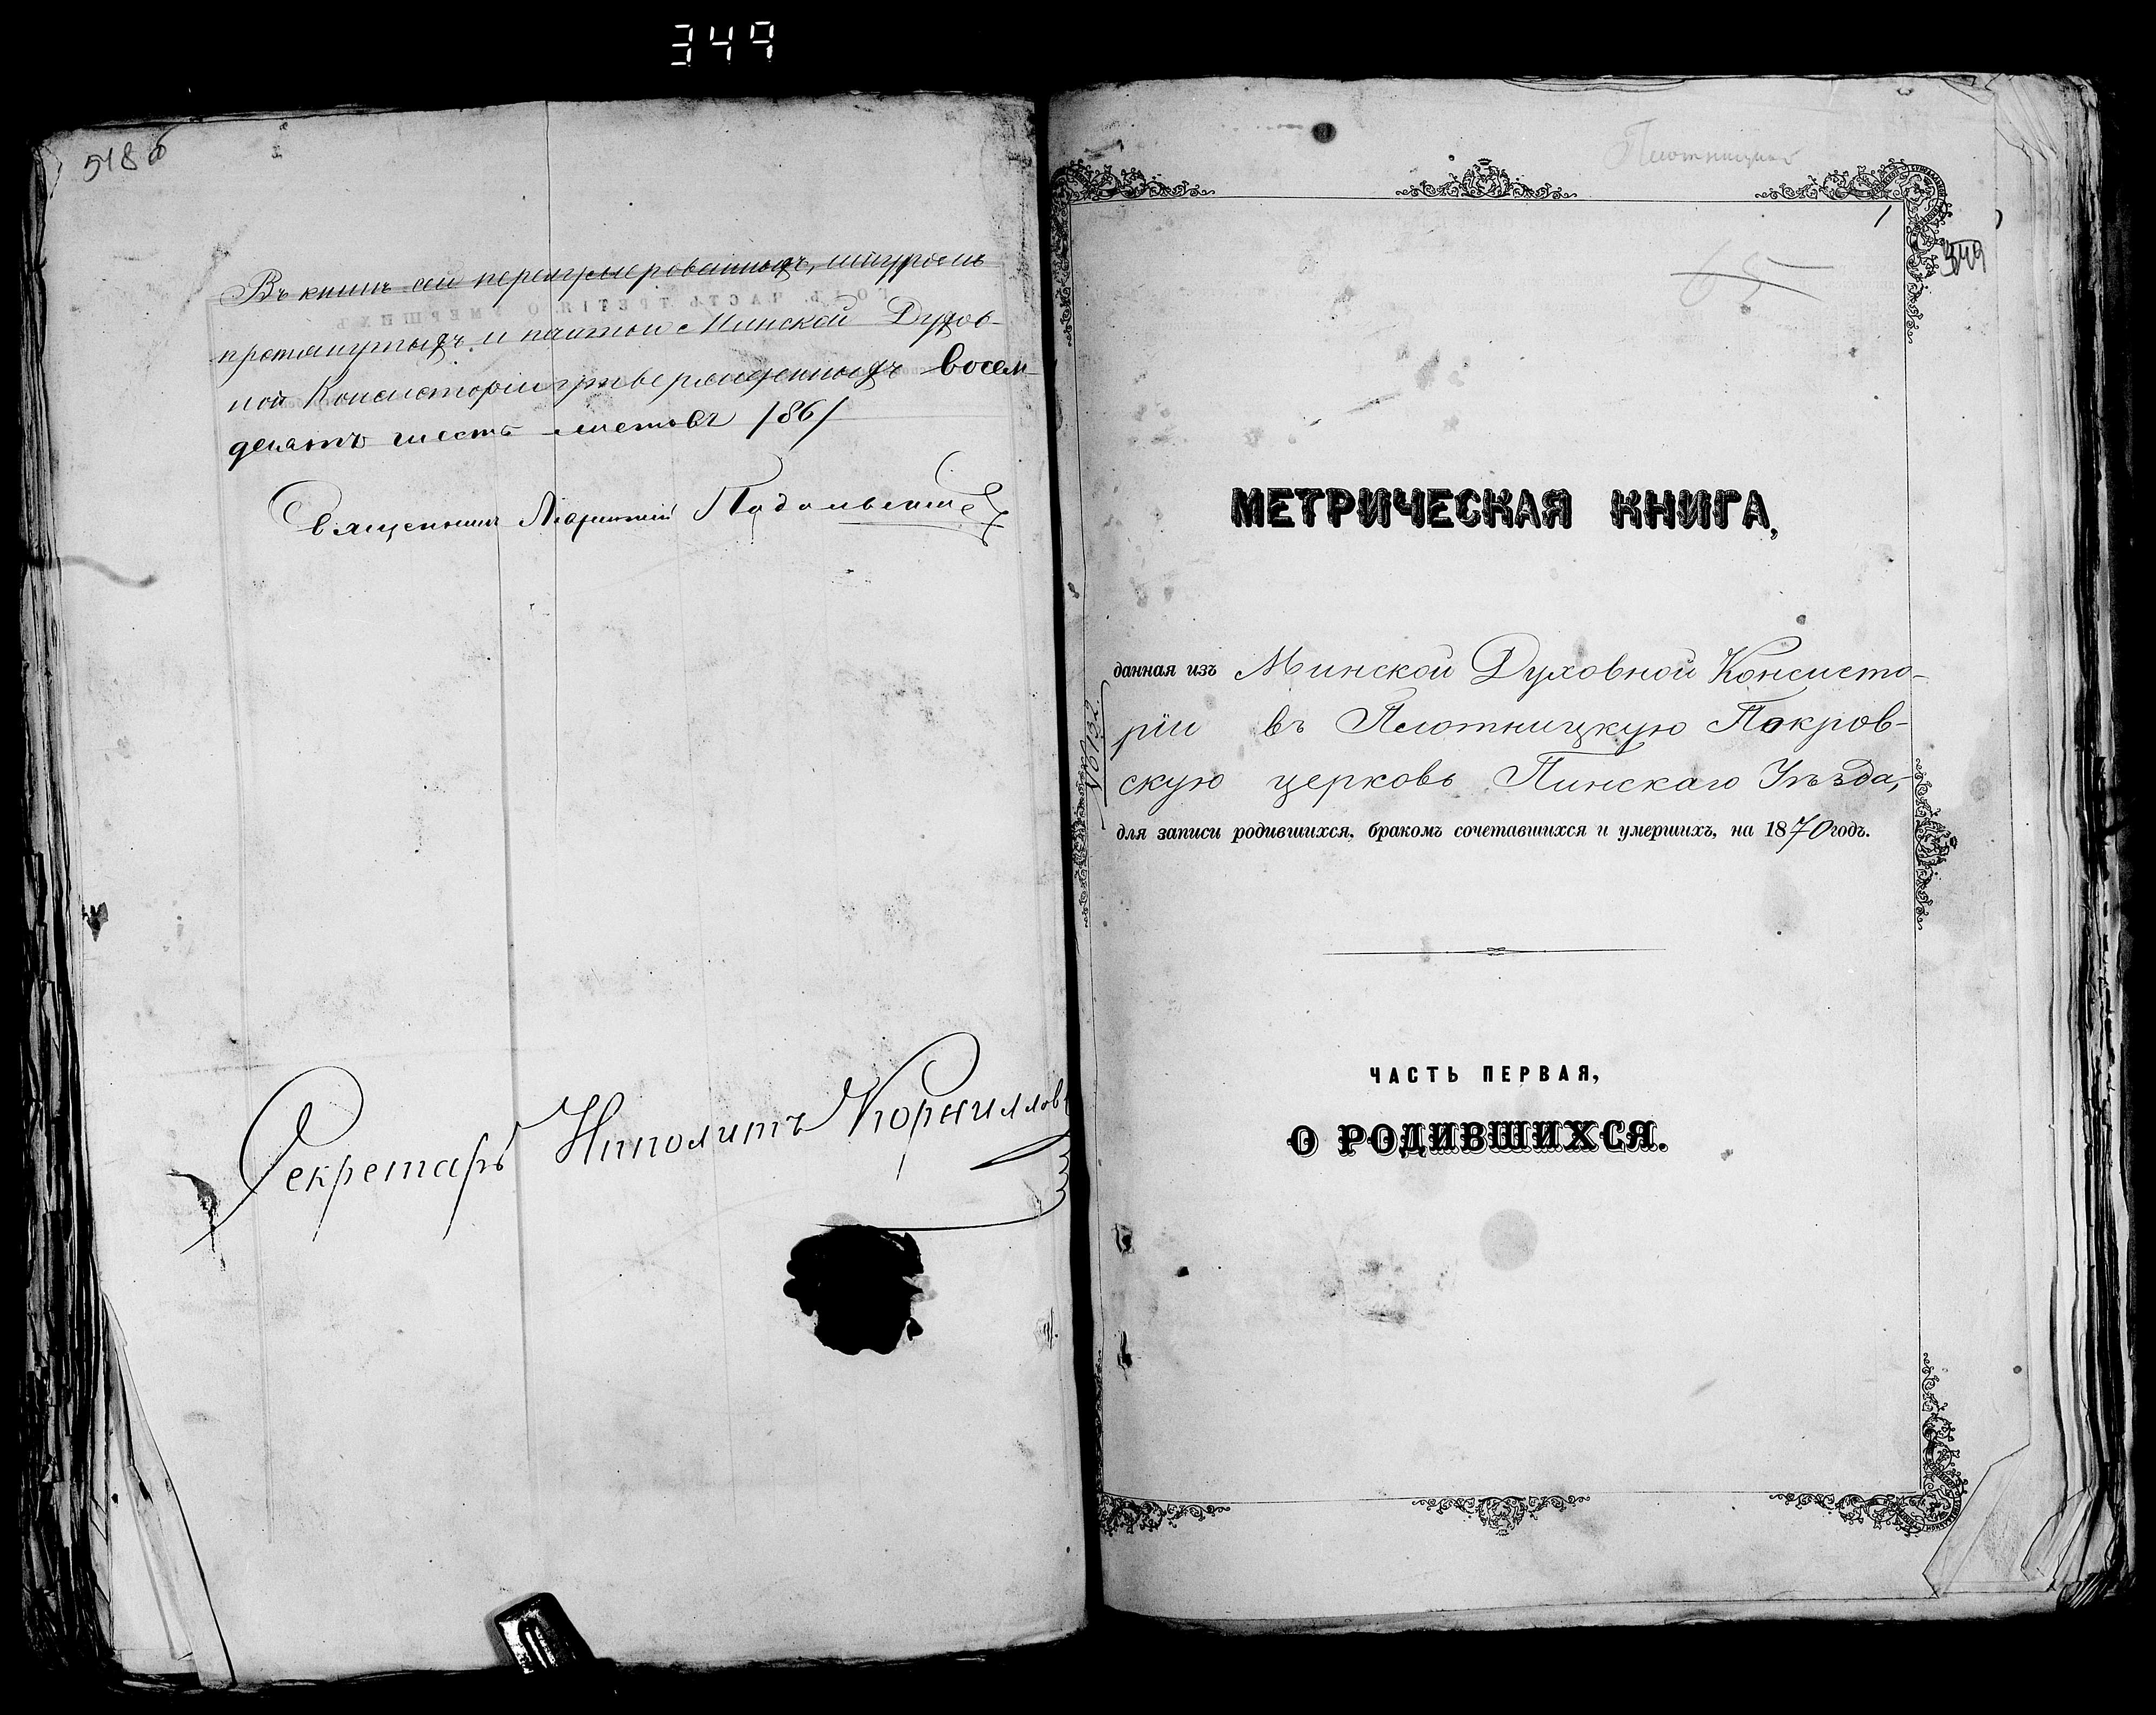 349
518 об
Въ книгѣ сей перенумерованныхъ, шнуромъ
протянутыхъ и печатью Минской Духов-
ной Консисторіи утвержденныхъ восем-
десятъ шесть листовъ /86/
Священникъ
Секретарь Ипполитъ Корниловъ
Плотницкая
1
349
65
МЕТРИЧЕСКАЯ КНИГА,
данная изъ Минской Духовной Консисто-
ріи въ Плотницкую Покров-
скую церковь Пинскаго Уѣзда,
для записи родившихся, бракомъ сочетавшихся и умершихъ, на 1870 годъ.
№ 132
ЧАСТЬ ПЕРВАЯ,
О РОДИВШИХСЯ.